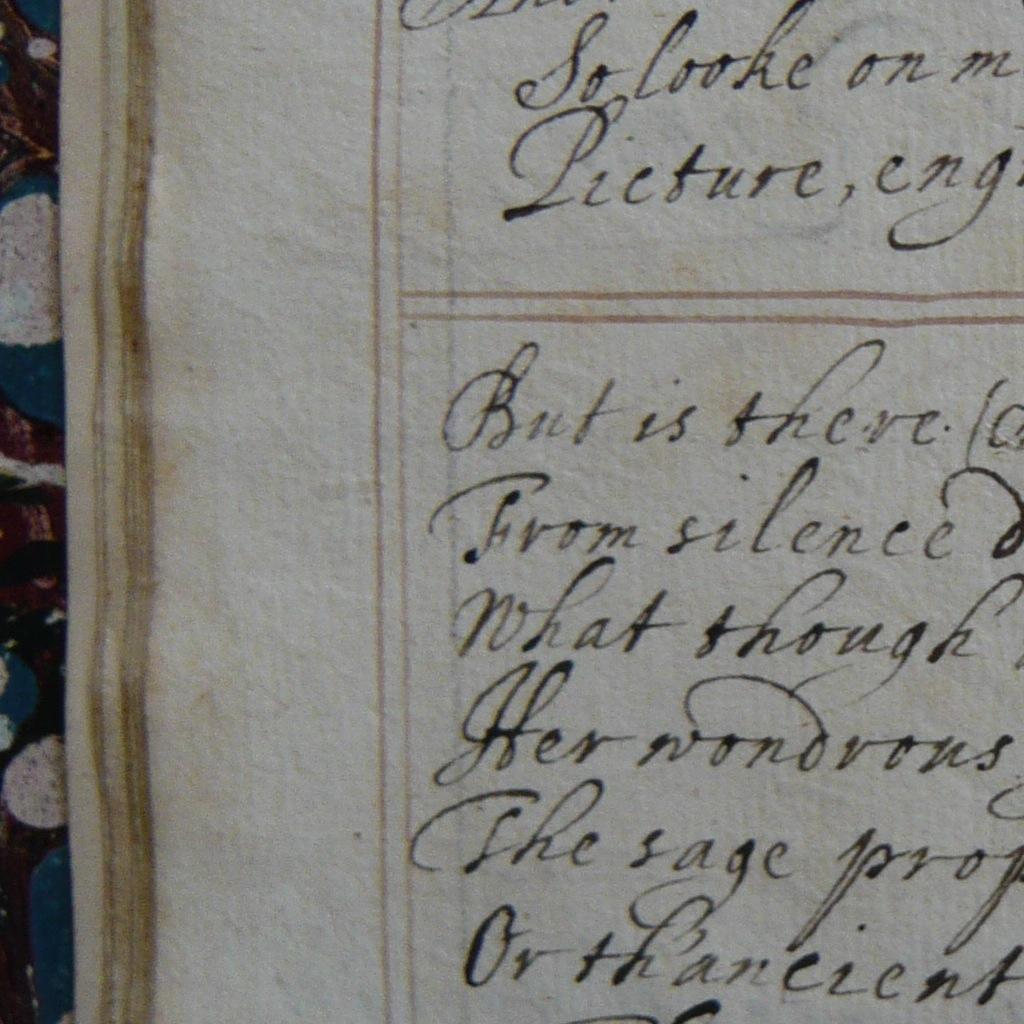 So looke on m
Picture, engr
But is there (
From silence d
What though
Her wondrous
The sage prop
Or th'ancient